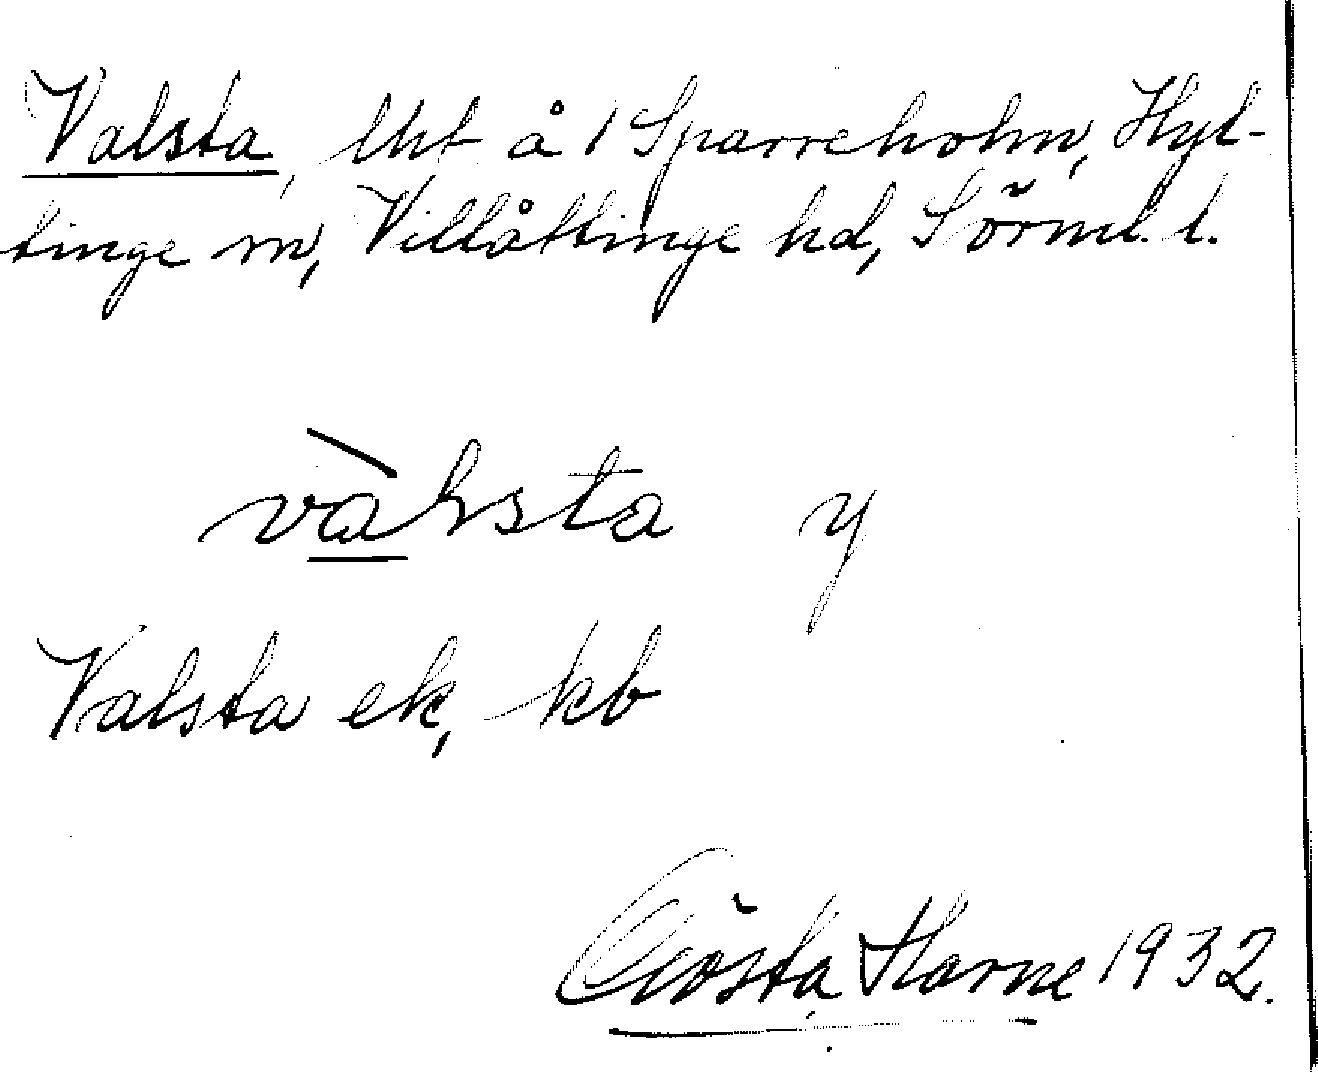 Valsta, lht å 1 Sparreholm, Hyl-
tinge sn, Villåttinge hd, Sörml. l.
vàlsta y
Valsta ek, kb
Gösta Harne 1932.